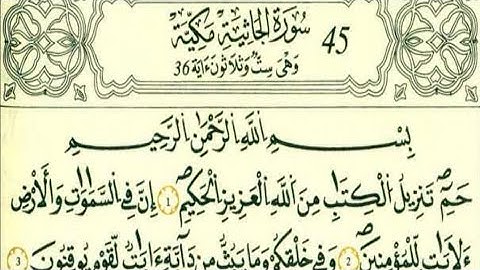 سُورَةُ الْجَاثِيَةِ مَكِّيَّةٌ 45
وَهِيَ سِتٌّ وَثَلَاثُونَ ءَايَةً 36
بِسْمِ اللَّهِ الرَّحْمَٰنِ الرَّحِيمِ
حمٓ تَنزِيلُ الْكِتَٰبِ مِنَ اللَّهِ الْعَزِيزِ الْحَكِيمِ 1 إِنَّ فِي السَّمَٰوَٰتِ وَالْأَرْضِ
لَءَايَٰتٍ لِّلْمُؤْمِنِينَ 2 وَفِي خَلْقِكُمْ وَمَا يَبُثُّ مِن دَآبَّةٍ ءَايَٰتٌ لِّقَوْمٍ يُوقِنُونَ 3